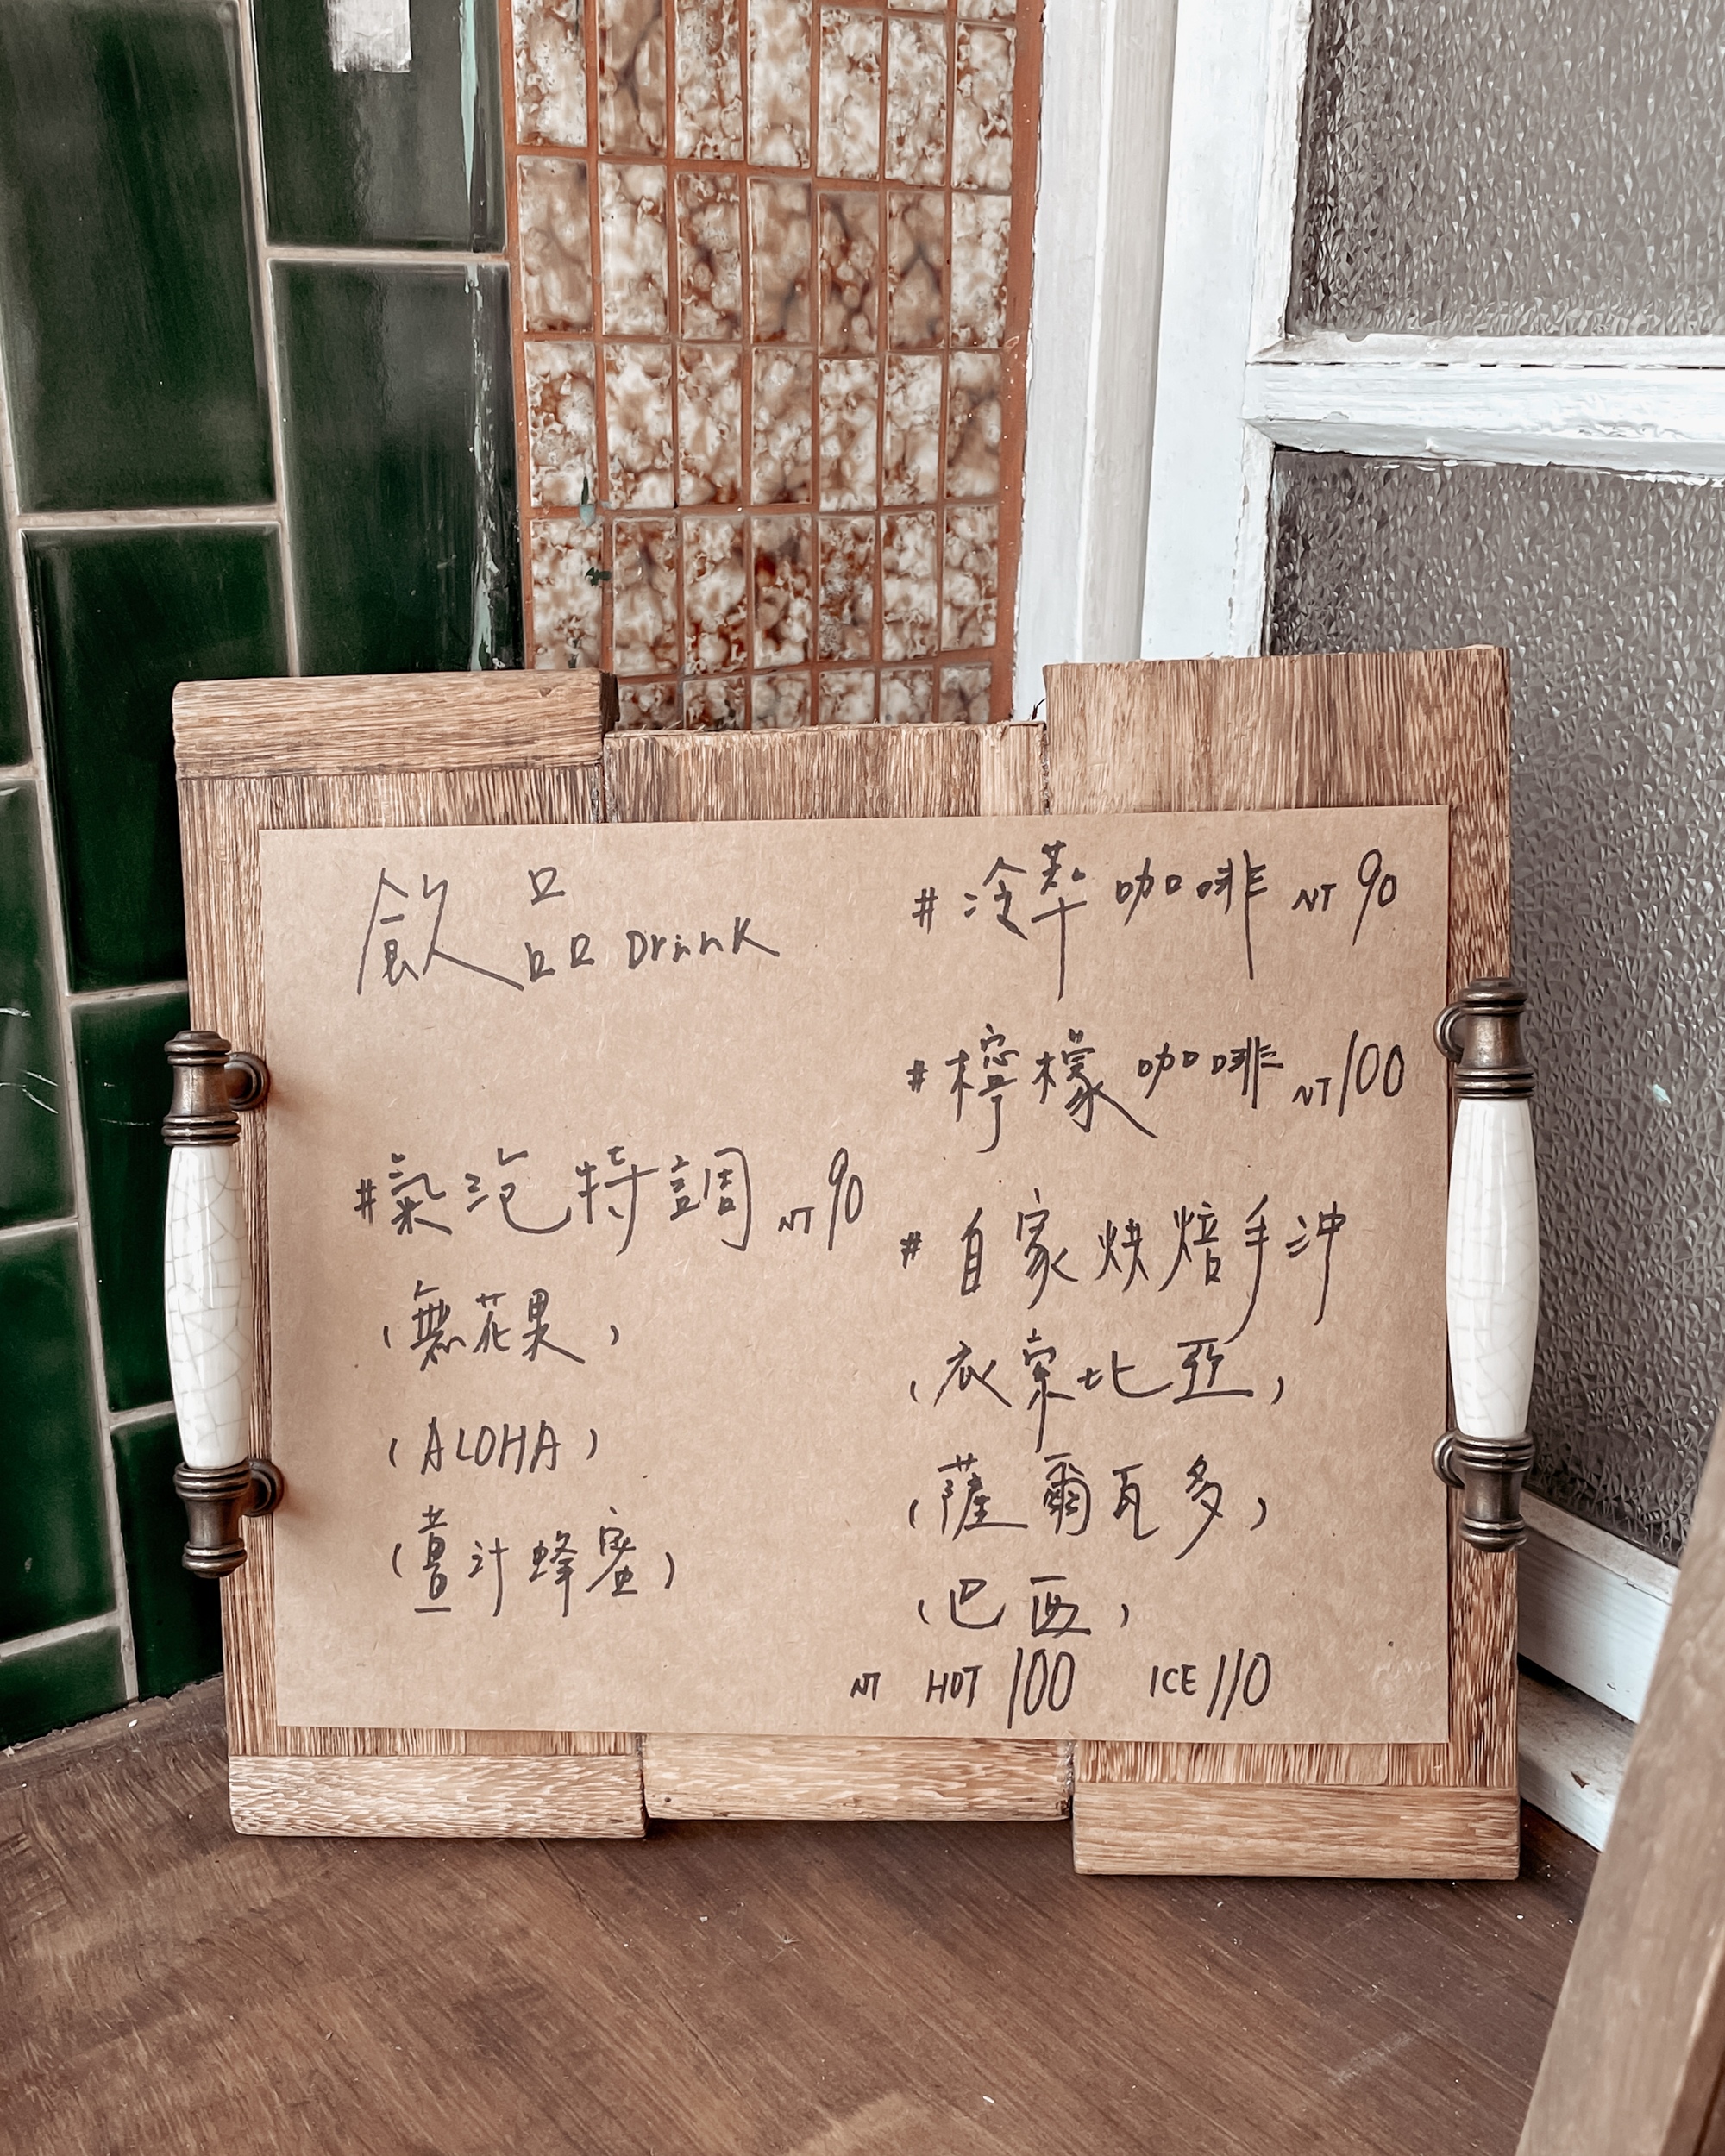 飲品 Drink
#氣泡特調 NT 90
(無花果)
(ALOHA)
(薑汁蜂蜜)
#冷萃咖啡 NT 90
#檸檬咖啡 NT 100
#自家烘焙手沖
(衣索比亞)
(薩爾瓦多)
(巴西)
NT HOT 100 ICE 110